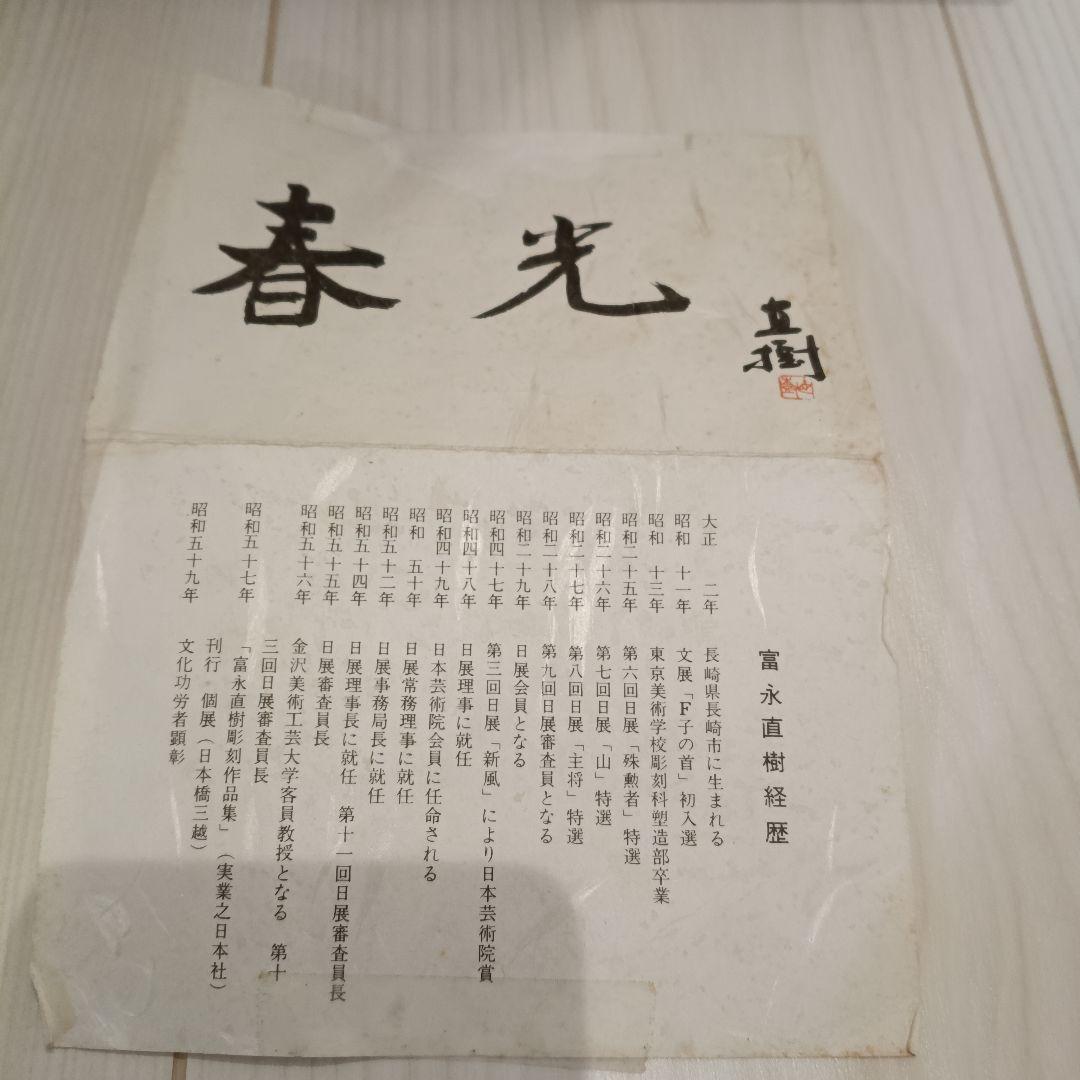 春光
直樹
富永直樹経歴
大正 二年 長崎県長崎市に生まれる
昭和 十一年 文展「F子の首」初入選
昭和 十三年 東京美術学校彫刻科塑造部卒業
昭和二十五年 第六回日展「殊勲者」特選
昭和二十六年 第七回日展「山」特選
昭和二十七年 第八回日展「主将」特選
昭和二十八年 第九回日展審査員となる
昭和二十九年 日展会員となる
昭和四十七年 第三回日展「新風」により日本芸術院賞
昭和四十八年 日展理事に就任
昭和四十九年 日本芸術院会員に任命される
昭和 五十年 日展常務理事に就任
昭和五十二年 日展事務局長に就任
昭和五十四年 日展理事長に就任 第十一回日展審査員長
昭和五十五年 日展審査員長
昭和五十六年 金沢美術工芸大学客員教授となる 第十
三回日展審査員長
昭和五十七年 「富永直樹彫刻作品集」(実業之日本社)
刊行 個展(日本橋三越)
昭和五十九年 文化功労者顕彰